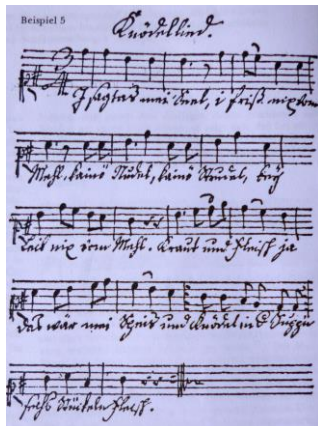 Beispiel 5
Knödellied.
I sag das mei Seel, i friß nix vom
Mehl, kaine Nudel, kaine Strudel, beÿ
Leib nix vom Mehl. Kraut und Fleisch ja
das wär mei Speis und Knödel in d Suppn
sechs Stückeln Fleisch.